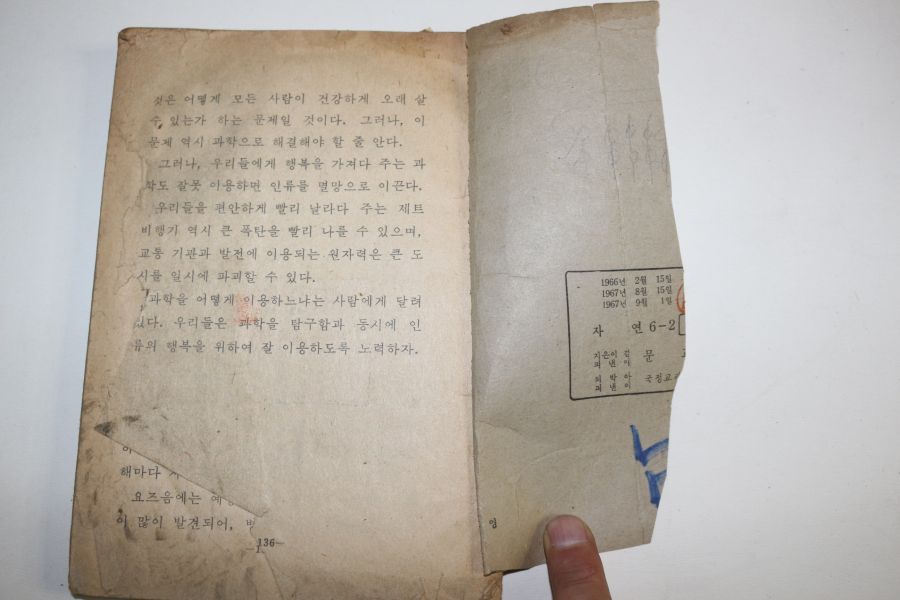 것은 어떻게 모든 사람이 건강하게 오래 살
수 있는가 하는 문제일 것이다. 그러나, 이
문제 역시 과학으로 해결해야 할 줄 안다.
그러나, 우리들에게 행복을 가져다 주는 과
학도 잘못 이용하면 인류를 멸망으로 이끈다.
우리들을 편안하게 빨리 날라다 주는 제트
비행기 역시 큰 폭탄을 빨리 나를 수 있으며,
교통 기관과 발전에 이용되는 원자력은 큰 도
시를 일시에 파괴할 수 있다.
과학을 어떻게 이용하느냐는 사람에게 달려
있다. 우리들은 과학을 탐구함과 동시에 인
류의 행복을 위하여 잘 이용하도록 노력하자.
해마다
요즈음에는
이 많이 발견되어,
136
1966년 2월 15일
1967년 8월 15일
1967년 9월 1일
자 연 6-2
지은이 겸
펴낸이
문
박아
펴낸이
국정교
영